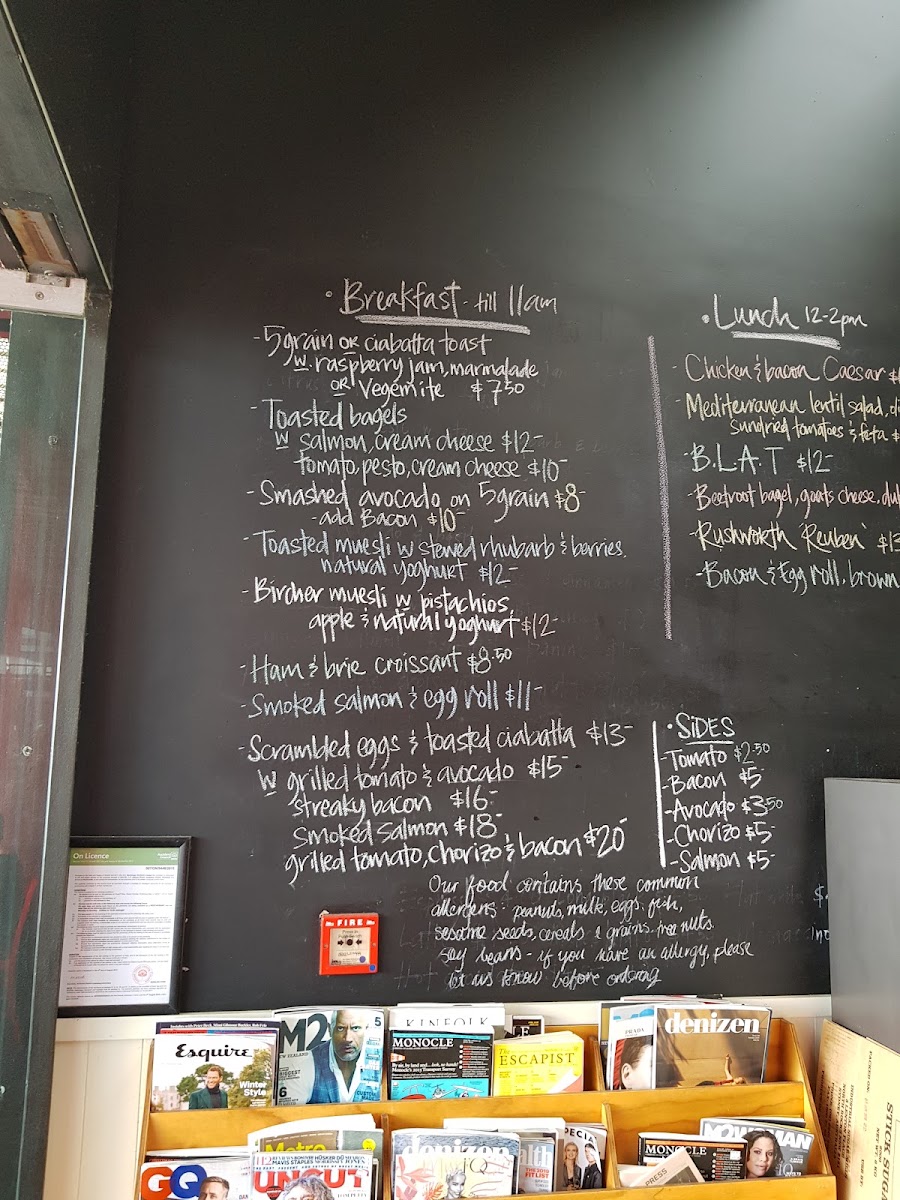 • Breakfast - till 11am
- 5 grain or ciabatta toast
w raspberry jam, marmalade
or Vegemite $7.50
- Toasted bagels
w salmon, cream cheese $12-
tomato, pesto, cream cheese $10-
- Smashed avocado on 5 grain $8-
- add Bacon $10-
- Toasted muesli w stewed rhubarb & berries,
natural yoghurt $12-
- Bircher muesli w pistachios,
apple & natural yoghurt $12-
- Ham & brie croissant $8.50
- Smoked salmon & egg roll $11-
- Scrambled eggs & toasted ciabatta $13-
w grilled tomato & avocado $15-
streaky bacon $16-
smoked salmon $18-
grilled tomato, chorizo & bacon $20-
• Lunch 12-2pm
- Chicken & bacon Caesar
- Mediterranean lentil salad,
sundried tomatoes & feta
- B.L.A.T $12-
- Beetroot bagel, goats cheese,
- Rushworth 'Reuben'
- Bacon & Egg roll, brown
• SIDES
- Tomato $2.50
- Bacon $5-
- Avocado $3.50
- Chorizo $5-
- Salmon $5-
Our food contains these common
allergens - peanuts, milk, eggs, fish,
sesame seeds, cereals & grains, tree nuts,
soy beans - if you have an allergy, please
let us know before ordering
On Licence
FIRE
Esquire
Winter
Style
M2
NEW ZEALAND
KINFOLK
MONOCLE
The
ESCAPIST
PRADA
denizen
GQ
Metro
UNCUT
denizen
MONOCLE
PRESS
M2WOMAN
STICK SUGAR